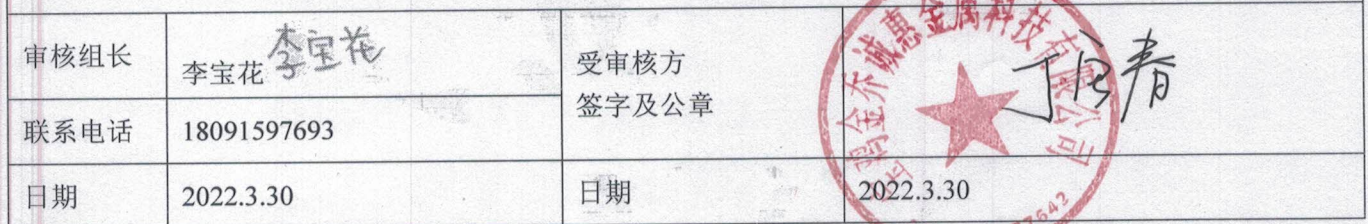 审核组长
李宝花 李宝花
受审核方
签字及公章
联系电话
18091597693
日期
2022.3.30
日期
2022.3.30
金乔诚惠金属科技有限公司
7642